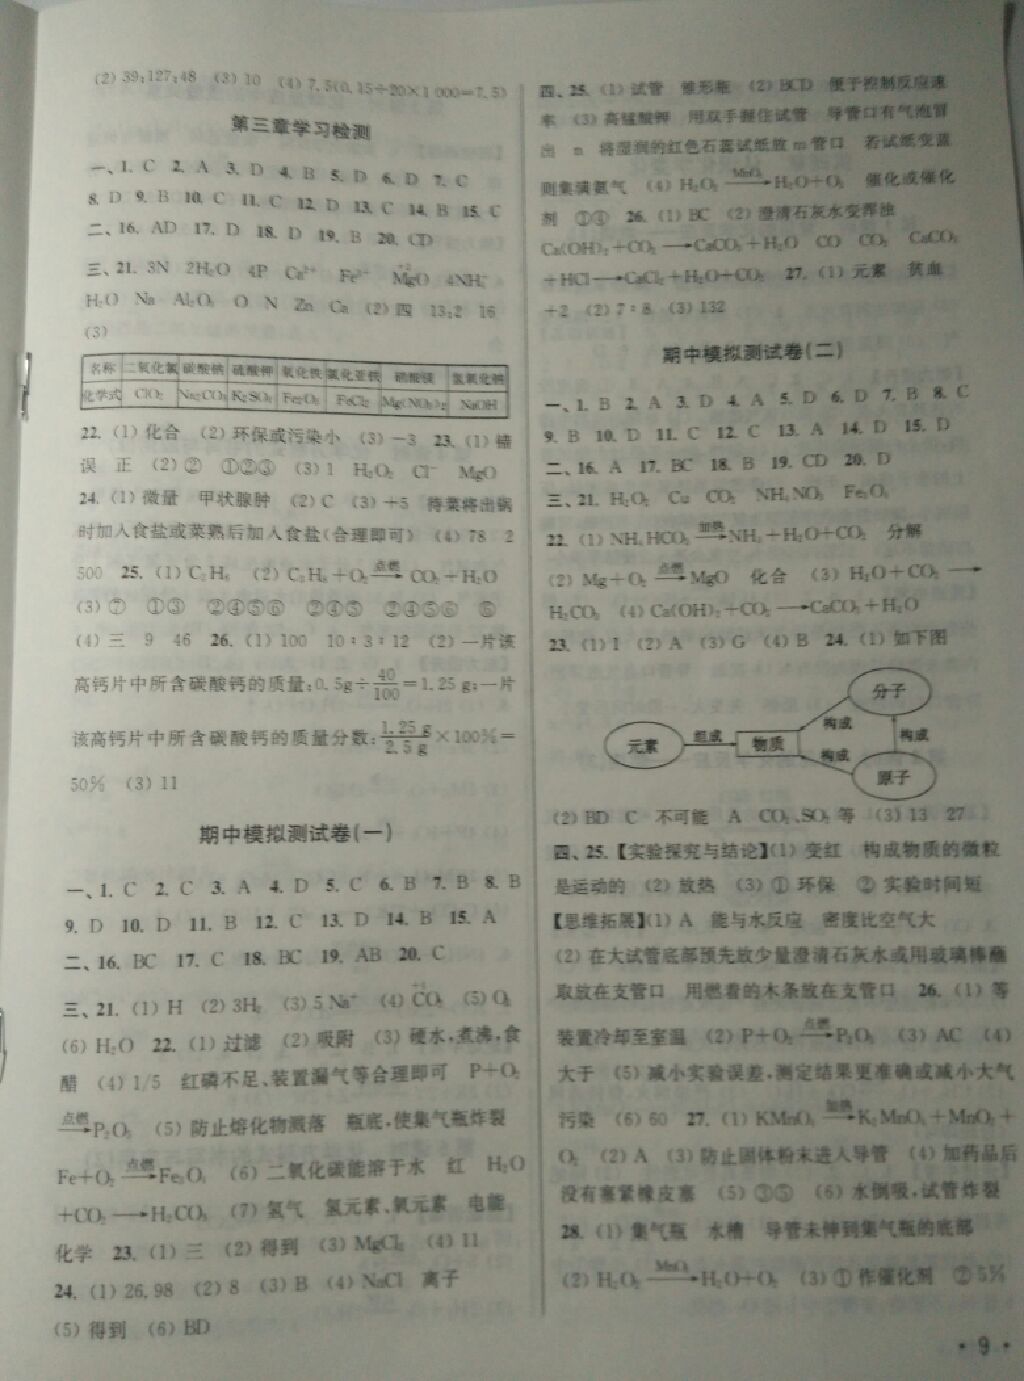 (2) 39:127:48 (3) 10 (4) 7.5(0.15÷20×1 000=7.5)
第三章学习检测
一、1. C 2. A 3. D 4. B 5. D 6. D 7. C
8. D 9. B 10. C 11. C 12. D 13. C 14. B 15. C
二、16. AD 17. D 18. D 19. B 20. CD
三、21. 3N 2H₂O 4P Ca²⁺ Fe³⁺ MgO 4NH₄⁺
H₂O Na Al₂O₃ O N Zn Ca (2) 四 13:2 16
(3)
名称 二氧化氯 碳酸钠 硫酸钾 氧化铁 氯化亚铁 硝酸镁 氢氧化钠
化学式 ClO₂ Na₂CO₃ K₂SO₄ Fe₂O₃ FeCl₂ Mg(NO₃)₂ NaOH
22. (1) 化合 (2) 环保或污染小 (3) -3 23. (1) 错
误 正 (2) ② ①②③ (3) 1 H₂O₂ Cl⁻ MgO
24. (1) 微量 甲状腺肿 (2) C (3) +5 待菜将出锅
时加入食盐或菜熟后加入食盐(合理即可) (4) 78 2
500 25. (1) C₃H₈ (2) C₃H₈+O₂ 点燃→ CO₂+H₂O
(3) ⑦ ①③ ②④⑤⑥ ②④⑤ ②④⑤⑥ ⑥
(4) 三 9 46 26. (1) 100 10:3:12 (2) 一片该
高钙片中所含碳酸钙的质量:0.5g÷40/100=1.25 g;一片
该高钙片中所含碳酸钙的质量分数:1.25 g/2.5 g×100%=
50% (3) 11
期中模拟测试卷(一)
一、1. C 2. C 3. A 4. D 5. C 6. B 7. B 8. B
9. D 10. D 11. B 12. C 13. D 14. B 15. A
二、16. BC 17. C 18. BC 19. AB 20. C
三、21. (1) H (2) 3H₂ (3) 5 Na⁺ (4) CO₂ (5) O₃
(6) H₂O 22. (1) 过滤 (2) 吸附 (3) 硬水,煮沸,食
醋 (4) 1/5 红磷不足、装置漏气等合理即可 P+O₂
点燃→P₂O₅ (5) 防止熔化物溅落 瓶底,使集气瓶炸裂
Fe+O₂ 点燃→Fe₃O₄ (6) 二氧化碳能溶于水 红 H₂O
+CO₂→H₂CO₃ (7) 氢气 氢元素、氧元素 电能
化学 23. (1) 三 (2) 得到 (3) MgCl₂ (4) 11
24. (1) 26.98 (2) 8 (3) B (4) NaCl 离子
(5) 得到 (6) BD
四、25. (1) 试管 锥形瓶 (2) BCD 便于控制反应速
率 (3) 高锰酸钾 用双手握住试管 导管口有气泡冒
出 n 将湿润的红色石蕊试纸放 m 管口 若试纸变蓝
则集满氨气 (4) H₂O₂ MnO₂→H₂O+O₂ 催化或催化
剂 ③④ 26. (1) BC (2) 澄清石灰水变浑浊
Ca(OH)₂+CO₂→CaCO₃+H₂O CO CO₂ CaCO₃
+HCl→CaCl₂+H₂O+CO₂ 27. (1) 元素 贫血
+2 (2) 7:8 (3) 132
期中模拟测试卷(二)
一、1. B 2. A 3. D 4. A 5. D 6. D 7. B 8. C
9. B 10. D 11. C 12. C 13. A 14. D 15. D
二、16. A 17. BC 18. B 19. CD 20. D
三、21. H₂O₂ Cu CO₂ NH₄NO₃ Fe₃O₄
22. (1) NH₄HCO₃ 加热→NH₃+H₂O+CO₂ 分解
(2) Mg+O₂ 点燃→MgO 化合 (3) H₂O+CO₂→
H₂CO₃ (4) Ca(OH)₂+CO₂→CaCO₃+H₂O
23. (1) I (2) A (3) G (4) B 24. (1) 如下图
分子
构成
元素 组成 物质 构成
构成
原子
(2) BD C 不可能 A CO₂、SO₂ 等 (3) 13 27
四、25.【实验探究与结论】(1) 变红 构成物质的微粒
是运动的 (2) 放热 (3) ① 环保 ② 实验时间短
【思维拓展】(1) A 能与水反应 密度比空气大
(2) 在大试管底部预先放少量澄清石灰水或用玻璃棒蘸
取放在支管口 用燃着的木条放在支管口 26. (1) 等
装置冷却至室温 (2) P+O₂ 点燃→P₂O₅ (3) AC (4)
大于 (5) 减小实验误差,测定结果更准确或减小大气
污染 (6) 60 27. (1) KMnO₄ 加热→K₂MnO₄+MnO₂+
O₂ (2) A (3) 防止固体粉末进入导管 (4) 加药品后
没有塞紧橡皮塞 (5) ③⑤ (6) 水倒吸,试管炸裂
28. (1) 集气瓶 水槽 导管未伸到集气瓶的底部
(2) H₂O₂ MnO₂→H₂O+O₂ (3) ① 作催化剂 ② 5%
· 9 ·